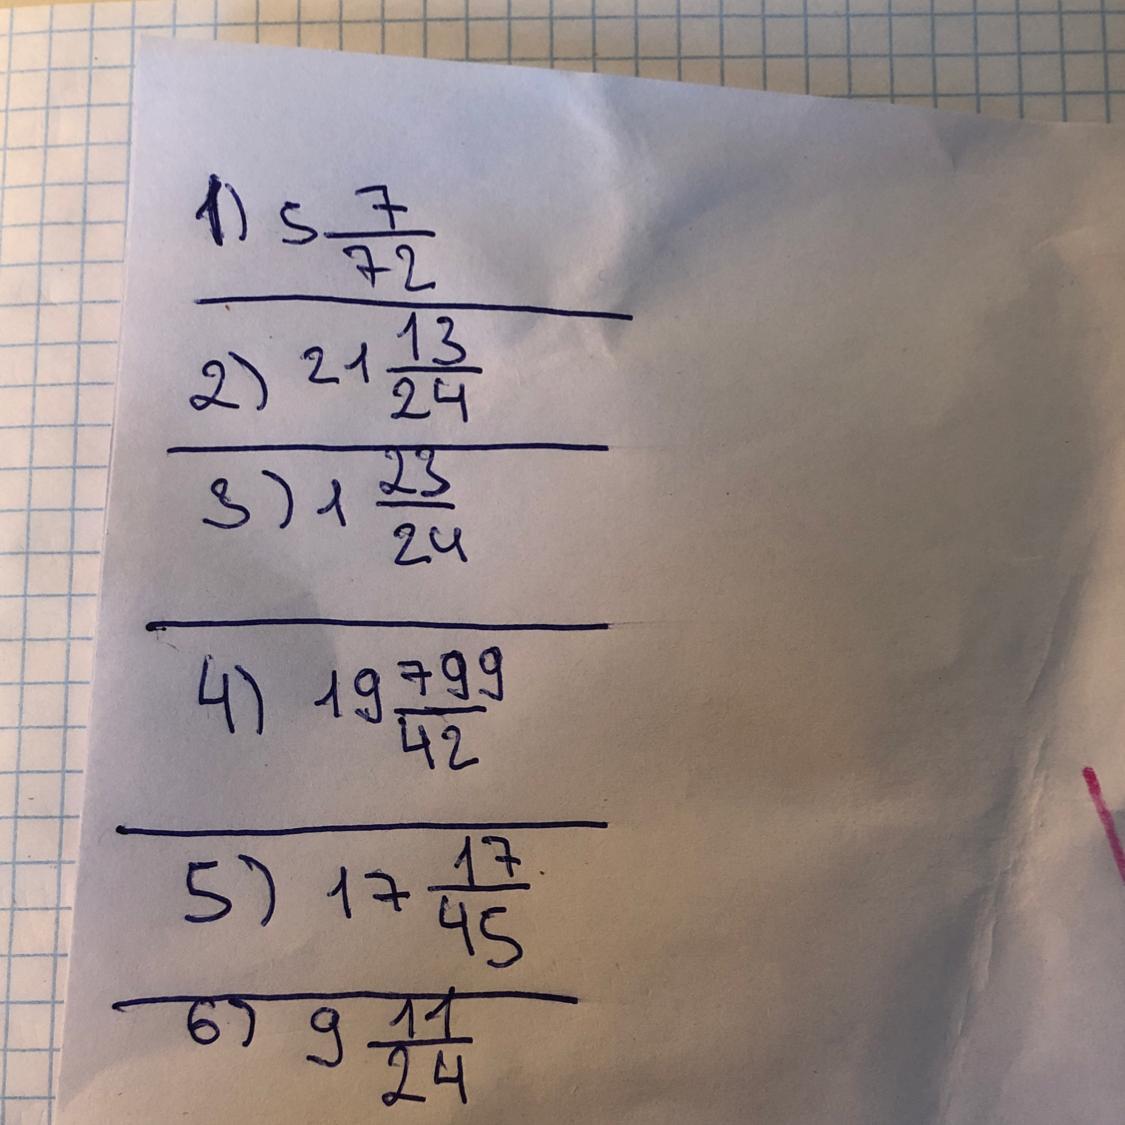 1) 5 7/72
2) 21 13/24
3) 1 23/24
4) 19 799/42
5) 17 17/45
6) 9 11/24